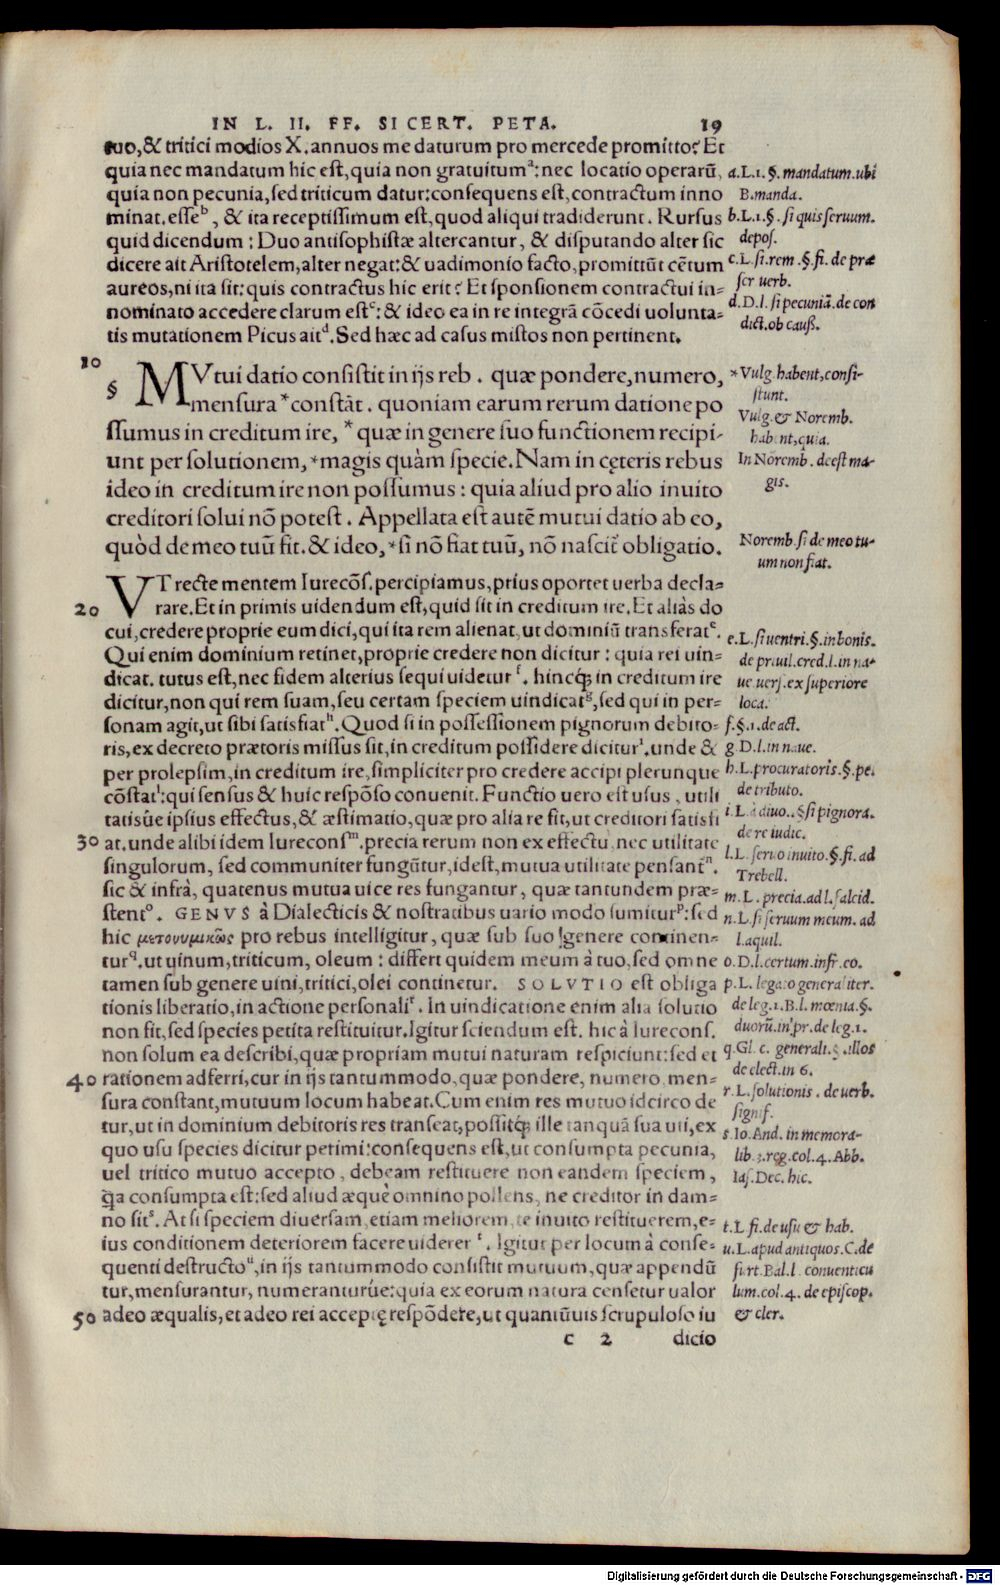 IN L. II. FF. SI CERT. PETA. 19
tuo,& tritici modios X. annuos me daturum pro mercede promitto? Et
quia nec mandatum hic est, quia non gratuitumª: nec locatio operarũ,
quia non pecunia, sed triticum datur: consequens est, contractum inno
minat. esseᵇ, & ita receptissimum est, quod aliqui tradiderunt. Rursus
quid dicendum: Duo antisophistæ altercantur, & disputando alter sic
dicere ait Aristotelem, alter negat: & uadimonio facto, promittũt cẽtum
aureos, ni ita sit: quis contractus hic erit? Et sponsionem contractui in=
nominato accedere clarum estᶜ: & ideo ea in re integrã cõcedi uolunta=
tis mutationem Picus aitᵈ. Sed hæc ad casus mistos non pertinent.
a. L. 1. §. mandatum. ubi
B. manda.
b. L. 1. §. si quis seruum.
depos.
c. L. si. rem. §. fi. de præ
scr uerb.
d. D. l. si pecuniã. de con
dict. ob cauß.
10
§ MVtui datio consistit in ijs reb. quæ pondere, numero,
mensura *constãt. quoniam earum rerum datione po
ssumus in creditum ire, *quæ in genere suo functionem recipi-
unt per solutionem, *magis quàm specie. Nam in cęteris rebus
ideo in creditum ire non possumus: quia aliud pro alio inuito
creditori solui nõ potest. Appellata est autẽ mutui datio ab eo,
quòd de meo tuũ fit. & ideo, *si nõ fiat tuũ, nõ nascit̃ obligatio.
* Vulg. habent, consi-
stunt.
Vulg. & Noremb.
habent, quia.
In Noremb. deest ma-
gis.
Noremb. si de meo tu-
um non fiat.
VT recte mentem Iurecõs. percipiamus, prius oportet uerba decla=
20 rare. Et in primis uidendum est, quid sit in creditum ire. Et aliàs do
cui, credere proprie eum dici, qui ita rem alienat, ut dominiũ transferatᵉ.
Qui enim dominium retinet, proprie credere non dicitur: quia rei uin=
dicat. tutus est, nec fidem alterius sequi uideturᶠ. hincq́; in creditum ire
dicitur, non qui rem suam, seu certam speciem uindicatᵍ, sed qui in per=
sonam agit, ut sibi satisfiatʰ. Quod si in possessionem pignorum debito=
ris, ex decreto prætoris missus sit, in creditum possidere diciturⁱ. unde &
per prolepsim, in creditum ire, simpliciter pro credere accipi plerunque
cõstatˡ: qui sensus & huic respõso conuenit. Functio uero est usus, utili
tatisúe ipsius effectus, & æstimatio, quæ pro alia re fit, ut creditori satisfi
30 at. unde alibi idem Iureconsᵐ. precia rerum non ex effectu, nec utilitate
singulorum, sed communiter fungũtur, idest, mutua utilitate pensant̃ⁿ.
sic & infrà, quatenus mutua uice res fungantur, quæ tantundem præ=
stentᵒ. GENVS à Dialecticis & nostratibus uario modo sumiturᵖ: sed
hic μετονυμικῶς pro rebus intelligitur, quæ sub suo genere continen=
turq. ut uinum, triticum, oleum: differt quidem meum à tuo, sed omne
tamen sub genere uini, tritici, olei continetur. SOLVTIO est obliga
tionis liberatio, in actione personaliʳ. In uindicatione enim alia solutio
non fit, sed species petita restituitur. Igitur sciendum est. hic à Iurecons.
non solum ea describi, quæ propriam mutui naturam respiciunt: sed et
40 rationem adferri, cur in ijs tantummodo, quæ pondere, numero, men=
sura constant, mutuum locum habeat. Cum enim res mutuo idcirco de
tur, ut in dominium debitoris res transeat, possitq́; ille tanquã sua uti, ex
quo usu species dicitur perimi: consequens est, ut consumpta pecunia,
uel tritico mutuo accepto, debeam restituere non eandem speciem,
q̃a consumpta est: sed aliud æquè omnino pollens, ne creditor in dam=
no sitˢ. At si speciem diuersam, etiam meliorem, te inuito restituerem, e=
ius conditionem deteriorem facere uidererᵗ. Igitur per locum à conse=
quenti destructoᵘ, in ijs tantummodo consistit mutuum, quæ appendũ
tur, mensurantur, numeranturúe: quia ex eorum natura censetur ualor
50 adeo æqualis, et adeo rei acceptę respõdere, ut quantũuis scrupuloso iu
e. L. si uentri. §. in bonis.
de priuil. cred. l. in na-
ue uers. ex superiore
loca.
f. §. 1. de act.
g. D. l. in naue.
h. L. procuratoris. §. pe.
de tributo.
i. L. à diuo.. § si pignora.
de re iudic.
l. L. seruo inuito. §. fi. ad
Trebell.
m. L. precia. ad l. falcid.
n. L. si seruum meum. ad
l. aquil.
o. D. l. certum. infr. eo.
p. L. legato generaliter.
de leg. 1. B. l. mœnia. §.
duorũ. in pr. de leg. 1.
q. Gl. c. generali. §. illos
de elect. in 6.
r. L. solutionis. de uerb.
signif.
s. Io. And. in memora-
lib. 3. reg. col. 4. Abb.
Ias. Dec. hic.
t. L. fi. de usu & hab.
u. L. apud antiquos. C. de
furt. Bal. l. conuenticu
lum. col. 4. de episcop.
& cler.
c 2 dicio
Digitalisierung gefördert durch die Deutsche Forschungsgemeinschaft - DFG